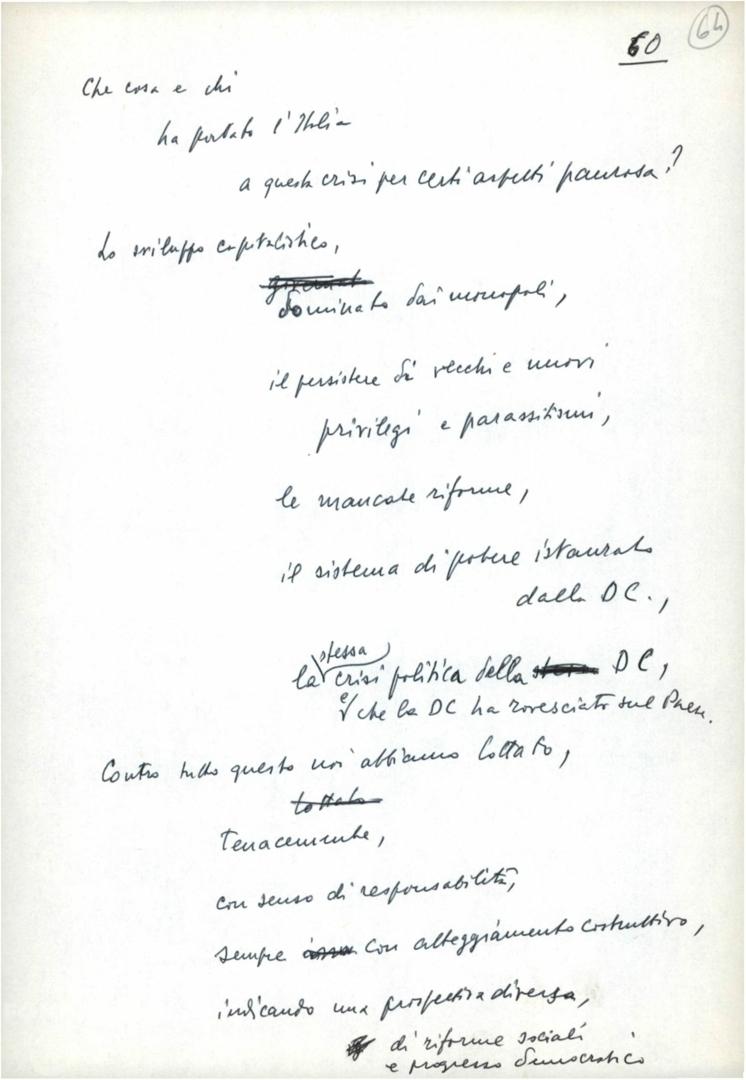 60
64
Che cosa e chi
ha portato l'Italia
a questa crisi per certi aspetti paurosa?
Lo sviluppo capitalistico,
dominato dai monopoli,
il persistere di vecchi e nuovi
privilegi e parassitismi,
le mancate riforme,
il sistema di potere istaurato
dalla DC.,
stessa
la crisi politica della DC,
e che la DC ha rovesciato sul Paese.
Contro tutto questo noi abbiamo lottato,
lottato
Tenacemente,
con senso di responsabilità,
sempre con atteggiamento costruttivo,
indicando una prospettiva diversa,
di riforme sociali
e progresso democratico